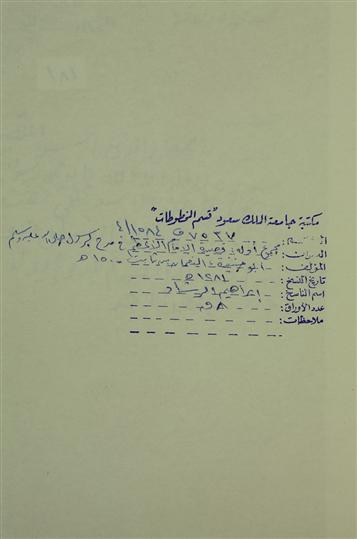 مكتبة جامعة الملك سعود "قسم المخطوطات"
الرقم: ٧٥٣٧ ف ١٥٨٤/٤
العنوان: مجموع أوله: قصيدة الإمام الأعظم في مدح الرسول صلى الله عليه وسلم
المؤلف: أبو حنيفة النعمان بن ثابت ١٥٠ هـ
تاريخ النسخ: ١٢٨٤ هـ
اسم الناسخ: إبراهيم الرشاد
عدد الأوراق: ٥٨
ملاحظات: